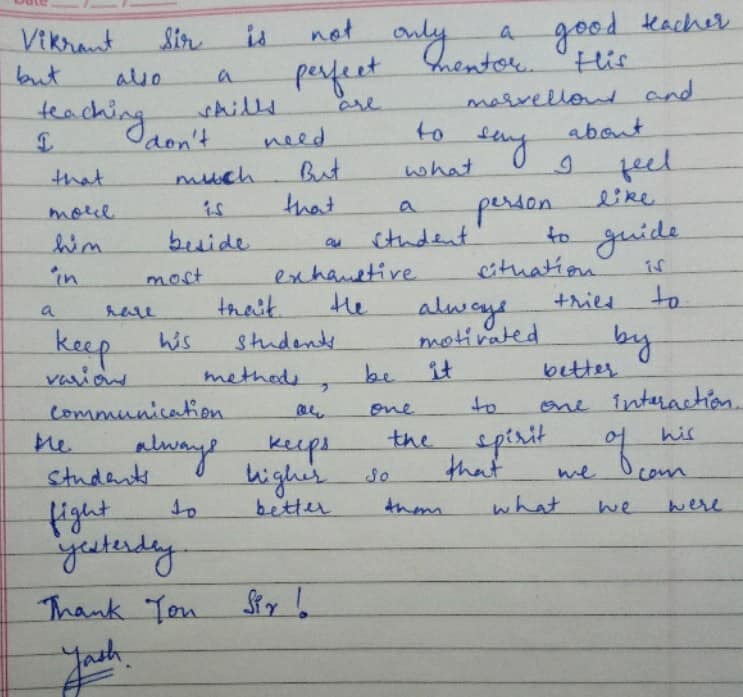 Date / /
Vikrant Sir is not only a good teacher
but also a perfect mentor. His
teaching skills are marvellous and
I don't need to say about
that much. But what I feel
more is that a person like
him beside a student to guide
in most exhaustive situation is
a rare trait. He always tries to
keep his students motivated by
various methods, be it better
communication or one to one interaction.
He always keeps the spirit of his
students higher so that we can
fight to better than what we were
yesterday.
Thank You Sir!
Yash.